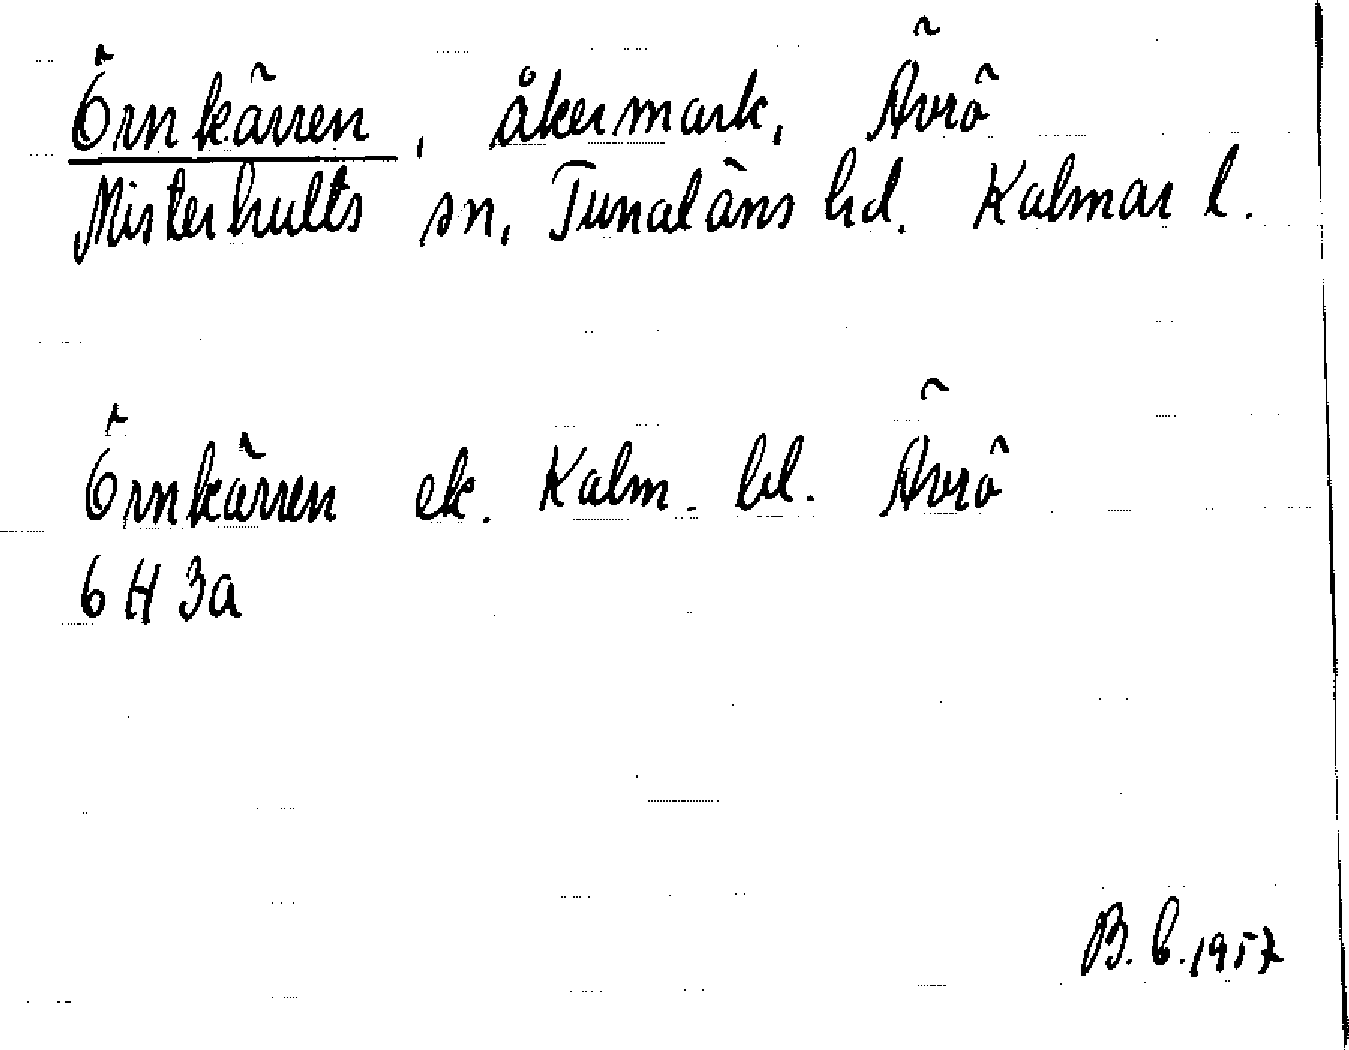 Örnkärren, åkermark, Ävrö
Misterhults sn, Tunaläns hd. Kalmar l.
Örnkärren ek. Kalm. bl. Ävrö
6 H 3a
B. b. 1957